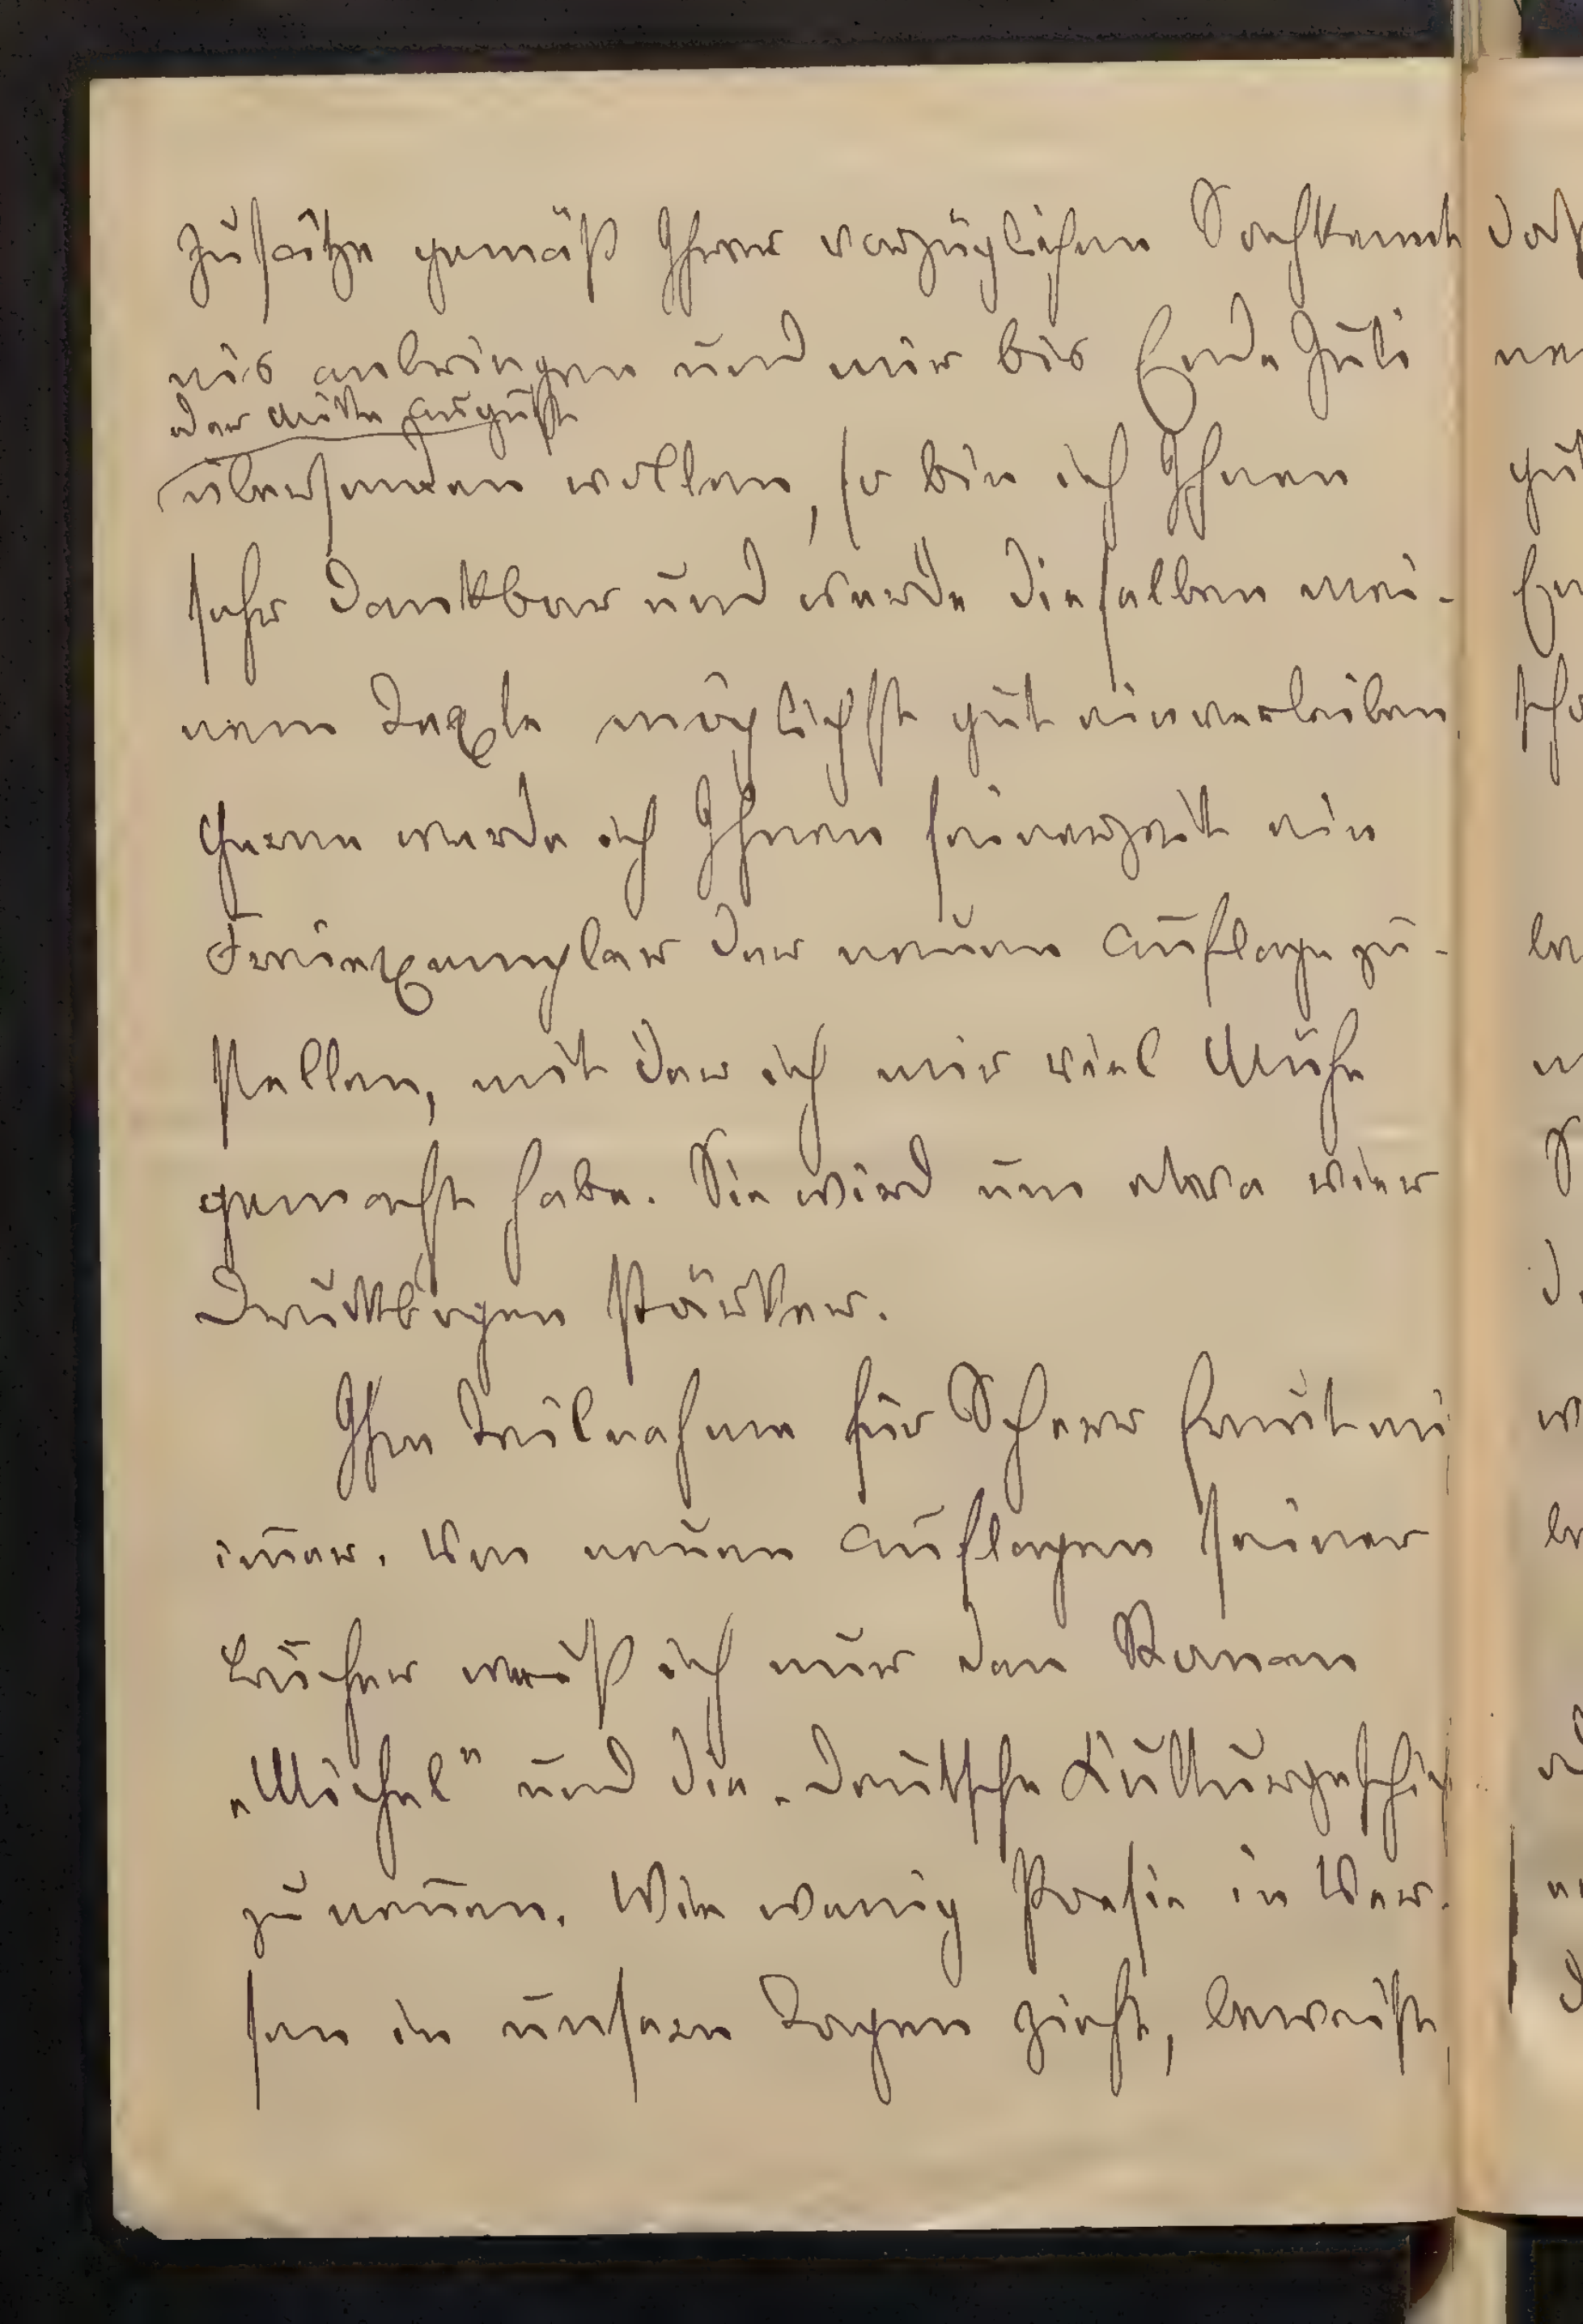 Zusätze gemäß Ihrer vorzüglichen Sachkennt
nis anbringen und mir bis Ende Juli
oder Mitte August
übersenden wollen, so bin ich Ihnen
sehr dankbar und werde dieselben mei-
nem Texte möglichst gut einverleiben
Gerne werde ich Ihnen seinerzeit ein
Freiexemplar der neuen Auflage zu-
stellen, mit der ich mir viel Mühe
gemacht habe. Sie wird um etwa vier
Druckbogen stärker.
Ihre Teilnahme für Scherr freut mi
im̅er. Von neuen Auflagen seiner
Bücher weiß ich nur den Roman
„Michel" und die „Deutsche Kulturgeschich
zu nen̅en. Wie wenig Poesie in Ver-
sen in unsern Tagen zieht, beweist